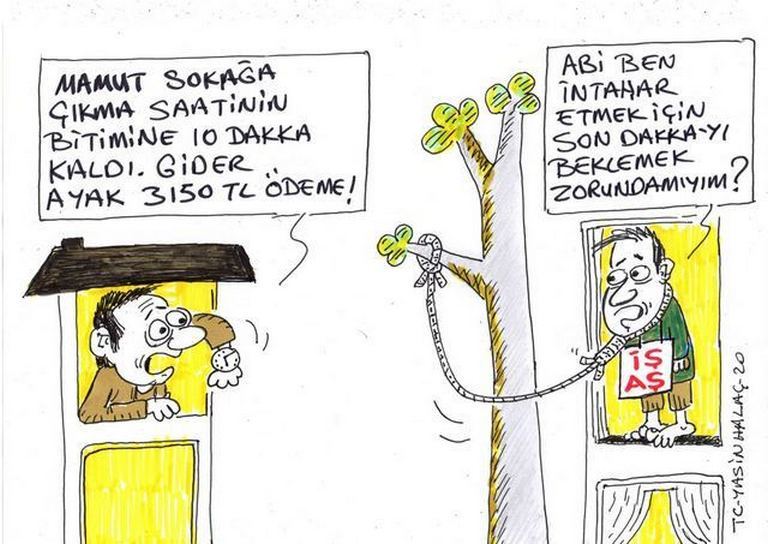 MAMUT SOKAĞA
ÇIKMA SAATİNİN
BİTİMİNE 10 DAKKA
KALDI. GİDER
AYAK 3150 TL ÖDEME!
ABİ BEN
İNTAHAR
ETMEK İÇİN
SON DAKKA-YI
BEKLEMEK
ZORUNDAMIYIM?
İŞ
AŞ
TC-YASİN HALAÇ-20